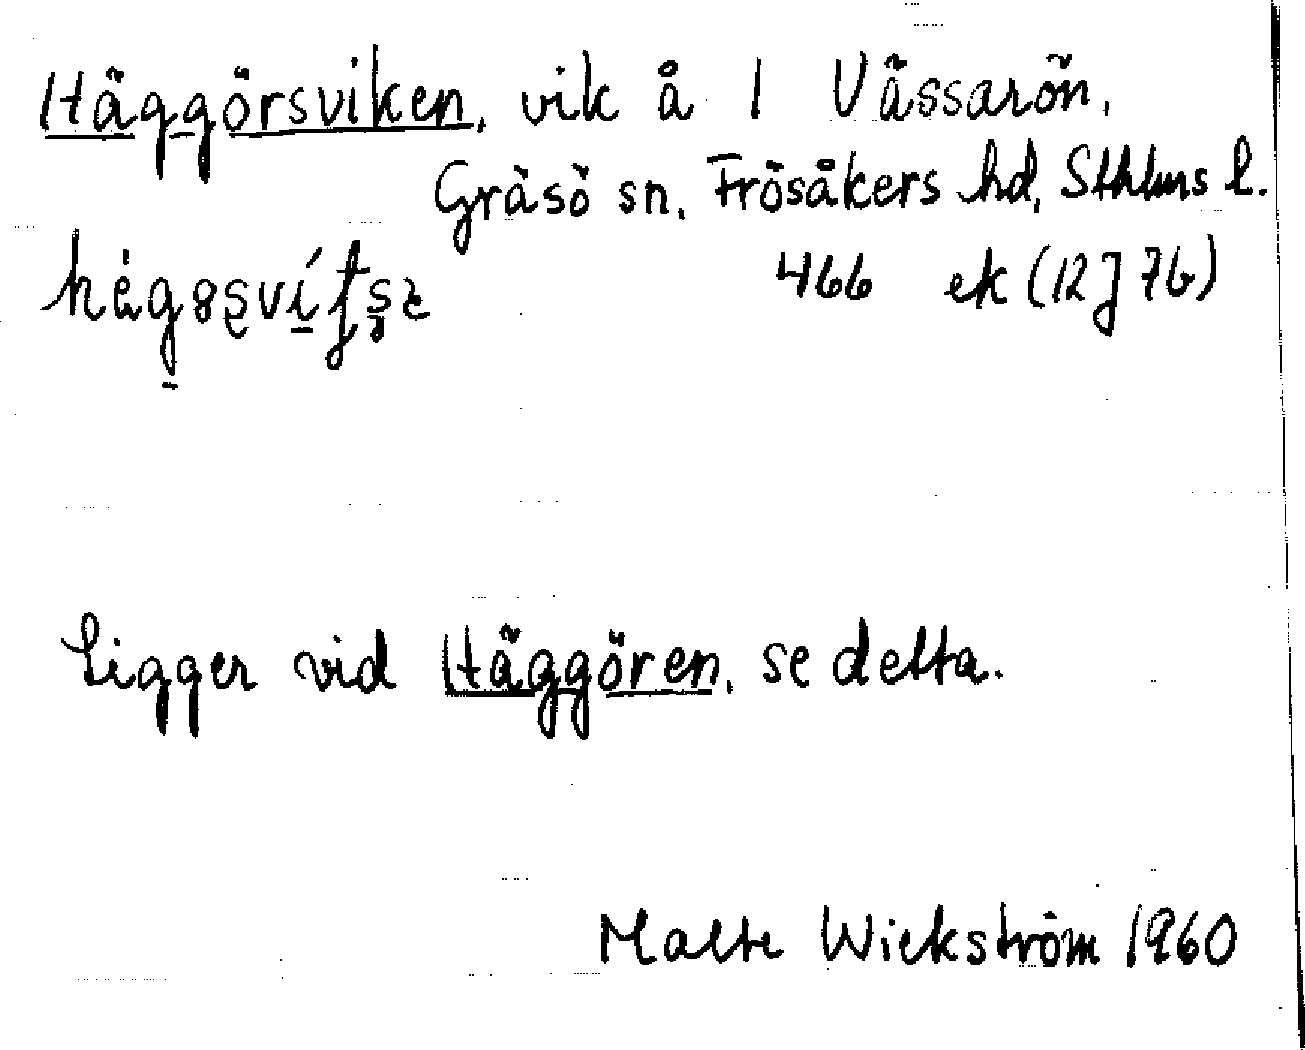 Häggörsviken, vik å 1 Vässarön,
Gräsö sn, Frösåkers hd, Sthlms l.
466 ek (12J 7b)
Ligger vid Häggören, se detta.
Malte Wickström 1960